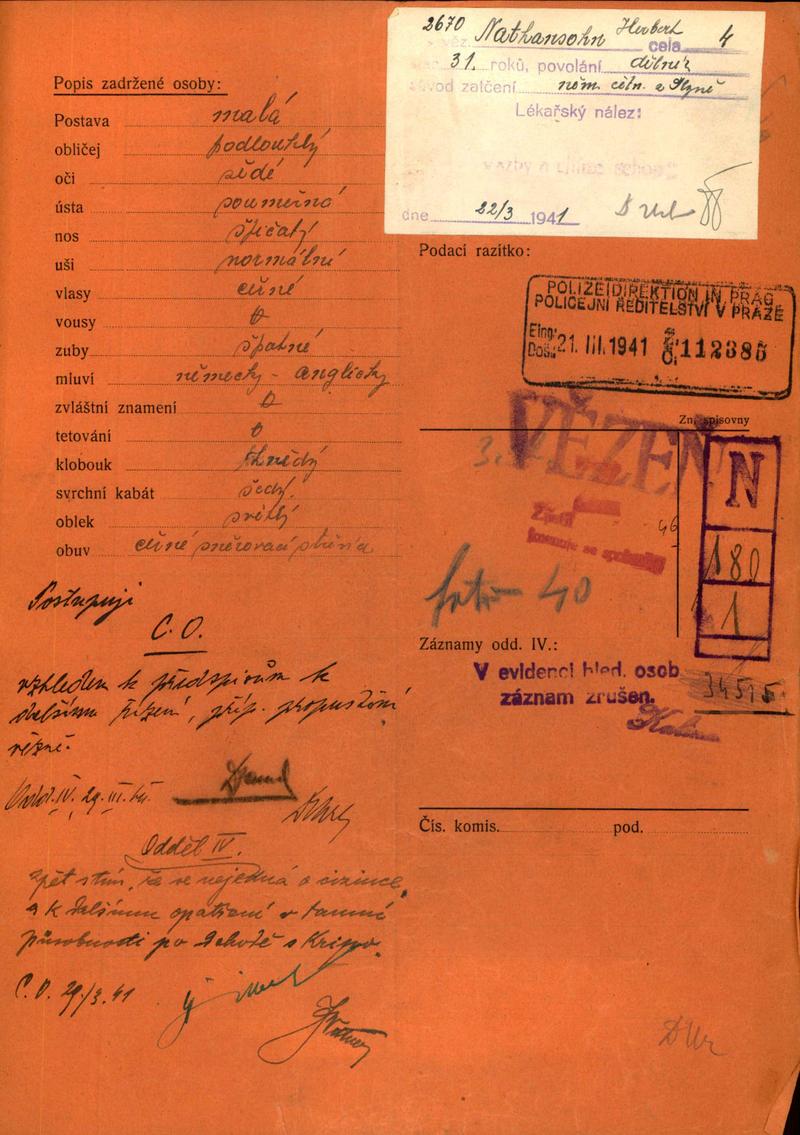 2670 Nathansohn Herbert 4
věz. cela
31. roků, povolání dělník
důvod zatčení něm. celn. z Plzně
Lékařský nález:
dne 22/3 1941
Popis zadržené osoby:
Postava malá
obličej podlouhlý
oči šedé
ústa souměrná
nos špičatý
uši normální
vlasy černé
vousy 0
zuby špatné
mluví německy - anglicky
zvláštní znamení 0
tetování 0
klobouk hnědý
svrchní kabát šedý
oblek světlý
obuv černé šněrovací
Podací razítko:
POLIZEIDIREKTION IN PRAG
POLICEJNÍ ŘEDITELSTVÍ V PRAZE
Eing.
Došlo 21. III. 1941 112385
Zn. spisovny
VĚZEŇ
N
180
1
46
foto 40
Záznamy odd. IV.:
V evidenci hled. osob
záznam zrušen.
34515
Čís. komis. pod.
Postupuji
C. O.
vzhledem k předpisům k
dalšímu řízení, příp. propuštění
vězně.
Odd. IV. 29. III. 41.
Odděl IV.
zpět s tím, že se nejedná o cizince,
a k dalšímu opatření v tamní
působnosti po dohodě s Kripo.
C. O. 29/3. 41